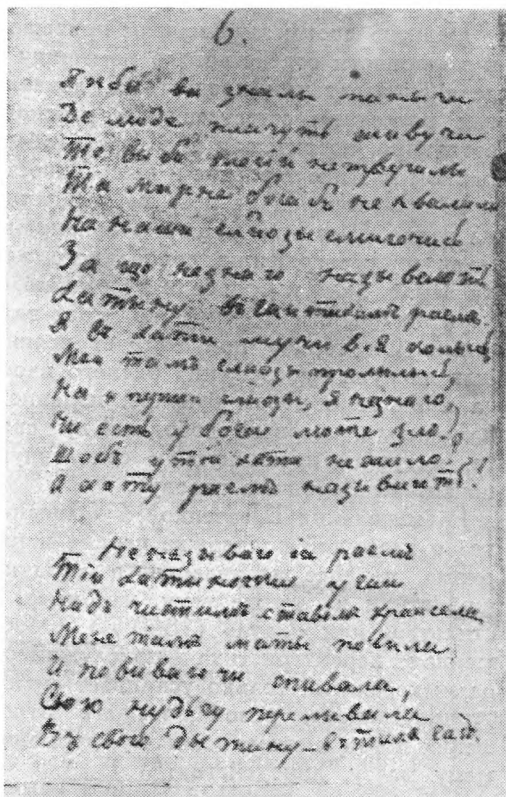 6.
Якбы вы зналы панычи
Де люде плачуть живучи
То вы бъ элегій не творили
Та марне бога бъ не хвалили
На наши слёзы сміючись.
За що не знаю называють
Хатыну въ гаи тихимъ раемъ.
Я въ хати мучився колысь
Мои тамъ слёзы пролылысь,
Найперши слёзы, я не знаю,
Чи есть у бога люте зло!
Щобъ у тій хати не жило?
А хату раемъ называють!
Не называю іи раемъ
Тіи хатыночки у гаи
Надъ чистымъ ставомъ край села
Мене тамъ маты повила
И повиваючи спивала,
Свою нудьгу переливала
Въ свою дытыну – въ тімъ гаю.